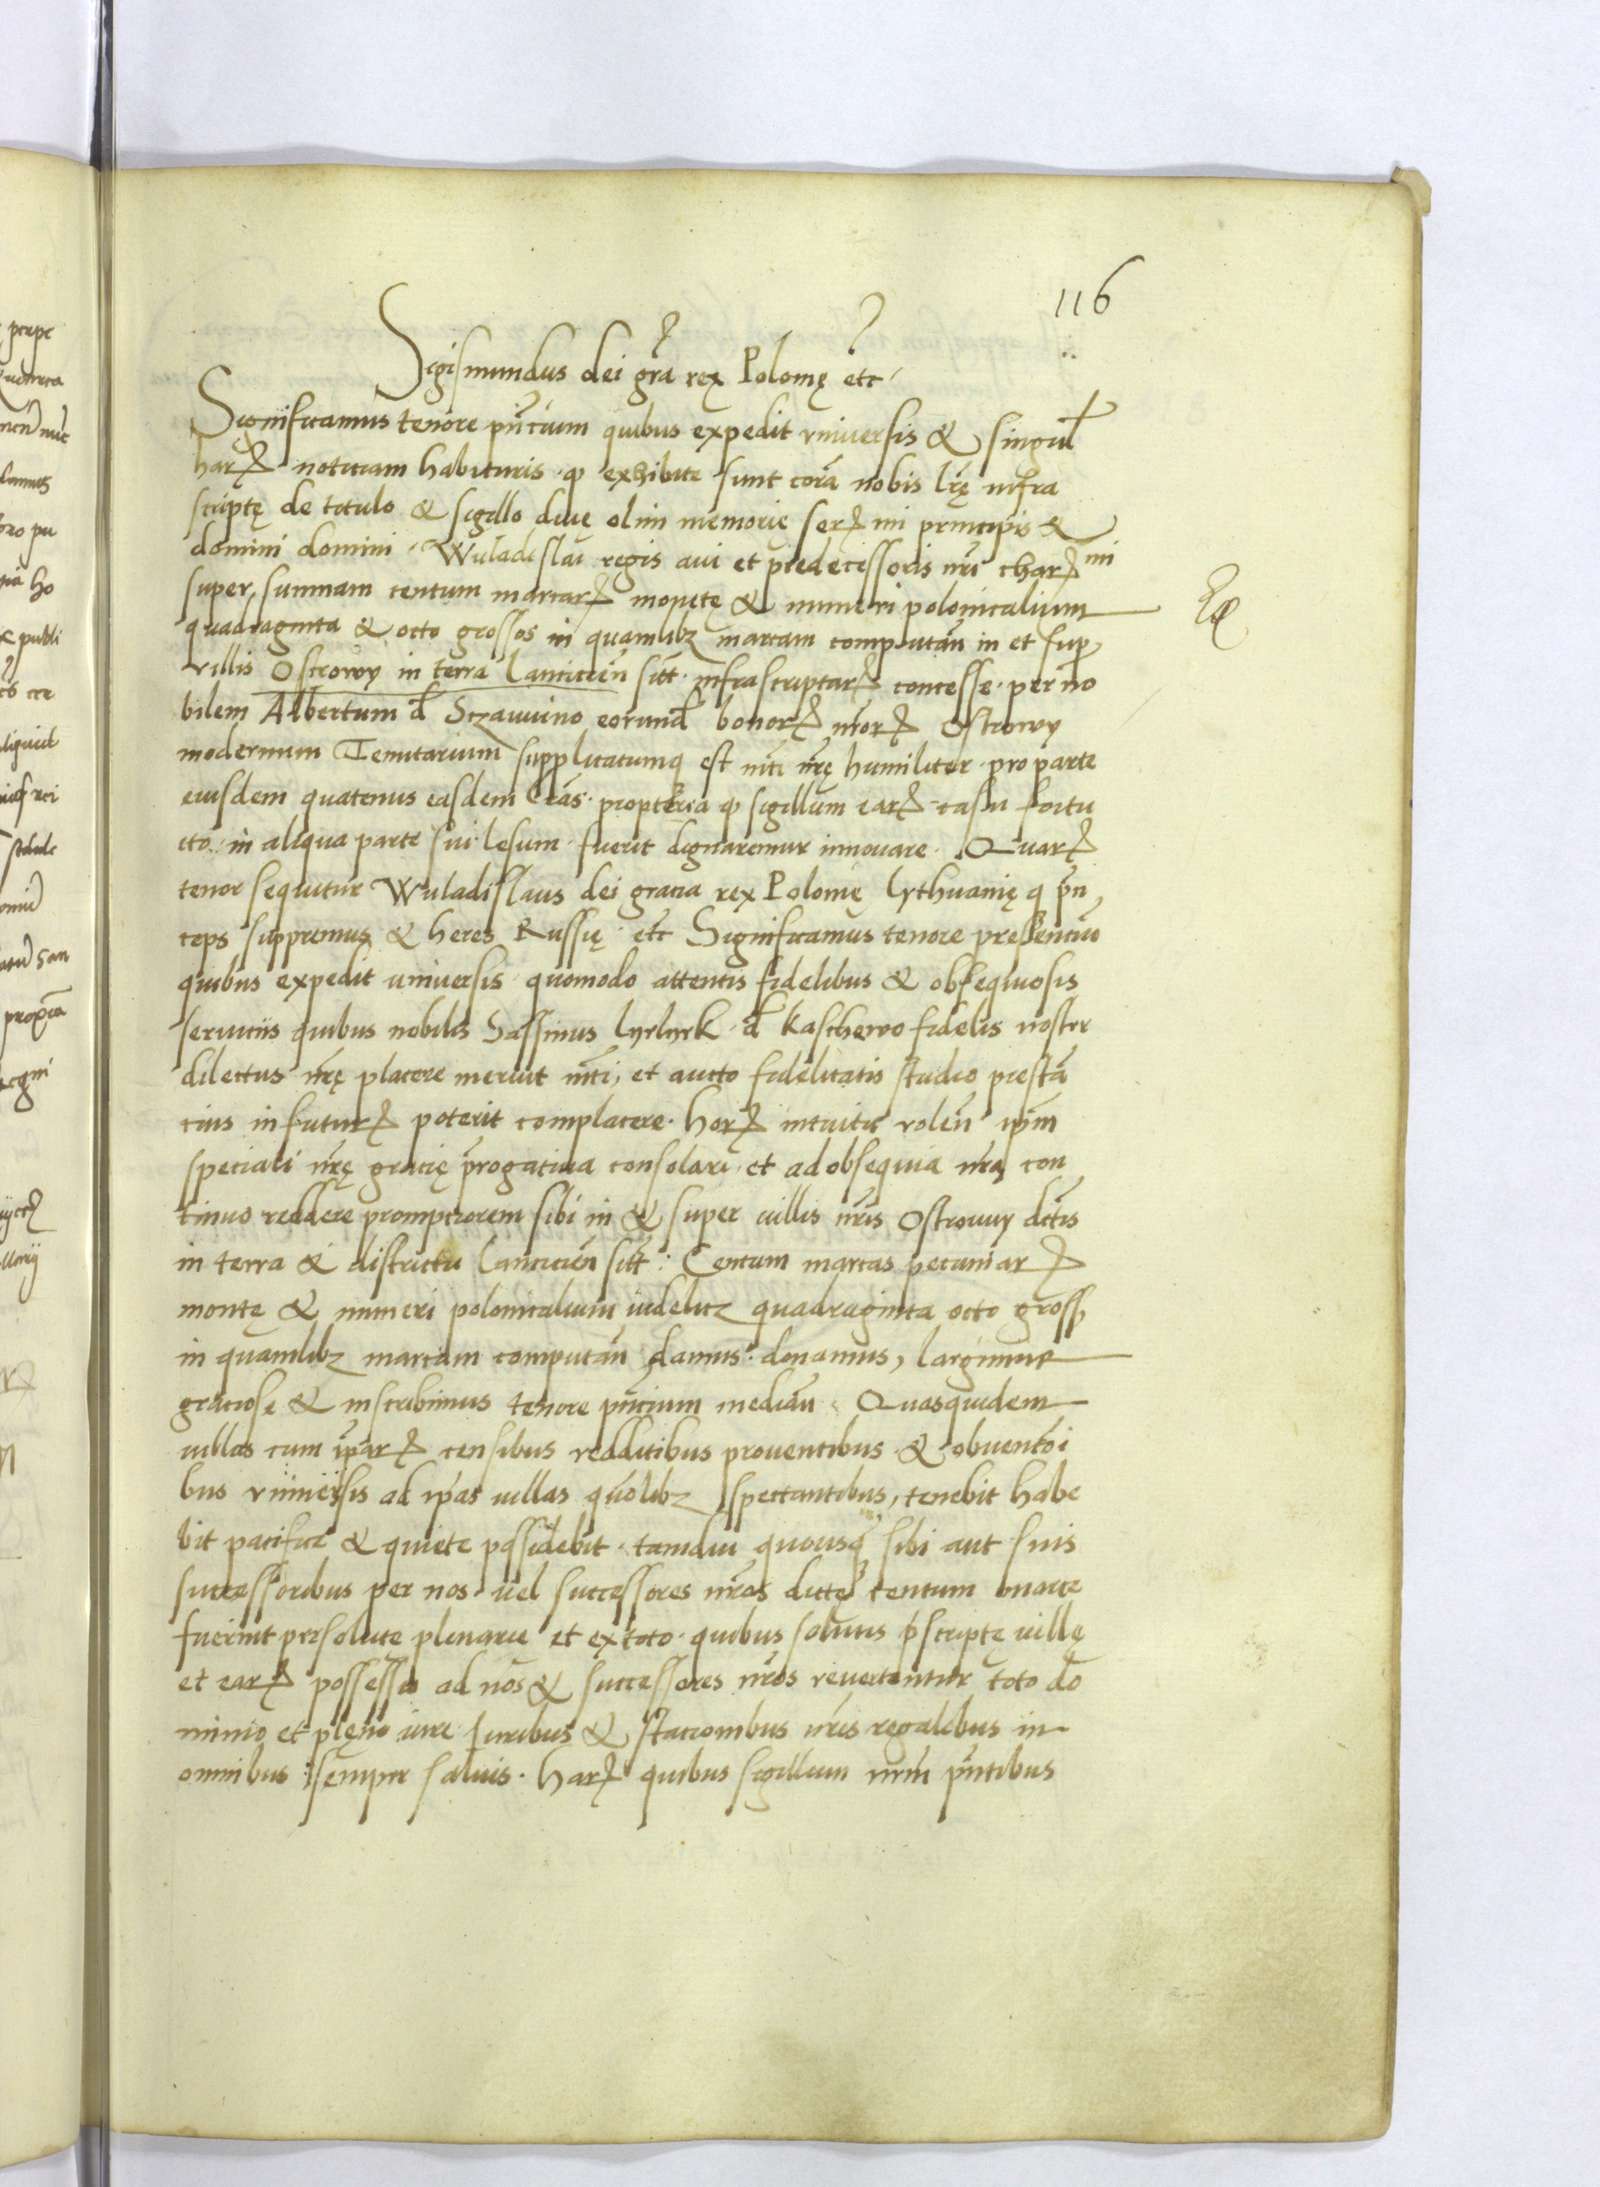 116
Sigismundus dei gra rex Polonię etc
Significamus tenore pntium quibus expedit vniuersis & singul
harꝝ notitiam habituris ꝙ exhibite sunt corā nobis lrę infra
scriptę de titulo & sigillo diuę olim memorię serꝝmi principis &
domini domini Wuladislai regis aui et predecessoris nri charꝝmi
super summam centum marcarꝝ monetę & numeri polonicalium
quadraginta & octo grossos in quamlibz marcam computān in et sup
villis Ostrowy in terra Lancicień sitt infrascriptarꝝ concesse per no
bilem Albertum d Sczawino eorund bonorꝝ nrorꝝ Ostrowy
modernum Tenutarium supplicatumq est mti nrę humiliter pro parte
eiusdem quatenus easdem lras propterea ꝙ sigillum earꝝ casu fortu
ito in aliqua parte sui lesum fuerit dignaremur innouare Quarꝝ
tenor sequitur Wuladislaus dei gracia rex Polonię Lythuanię q prin
ceps suppremus & heres Russię etc Significamus tenore presentiū
quibus expedit vniuersis quomodo attentis fidelibus & obsequiosis
seruitiis quibus nobilis Sassinus Lyrlyrk d Kaschewo fidelis noster
dilectus nrę placere meruit mti, et aucto fidelitatis studio prestā
cius in futurꝝ poterit complacere. horꝝ intuitu volen ipm
speciali nrę gracię prrogatiua consolari et ad obsequia nra con
tinuo reddere promptiorem sibi in & super villis nris Ostrowy dctis
in terra & districtu Lancicień sitt: Centum marcas pecuniarꝝ
monetę & numeri polonicalium videlicz quadraginta octo gross
in quamlibz marcam computān damus donamus, largimur
graciose & inscribimus tenore pntium mediān Quasquidem
villas cum iparꝝ censibus redditibus prouentibus & obuentoi
bus vniuersis ad ipas villas quolibz spectantibus, tenebit habe
bit pacifice & quiete possidebit tamdiu quousq sibi aut suis
successoribus per nos vel successores nros dictę centum marce
fuerint persolutę plenarie et ex toto quibus solutis pscriptę villę
et earꝝ possessio ad nos & successores nros reuertentur toto do
minio et plęno iure Iuribus & stacionibus nris regalibus in
omnibus semper saluis. harꝝ quibus sigillum nrm pntibus